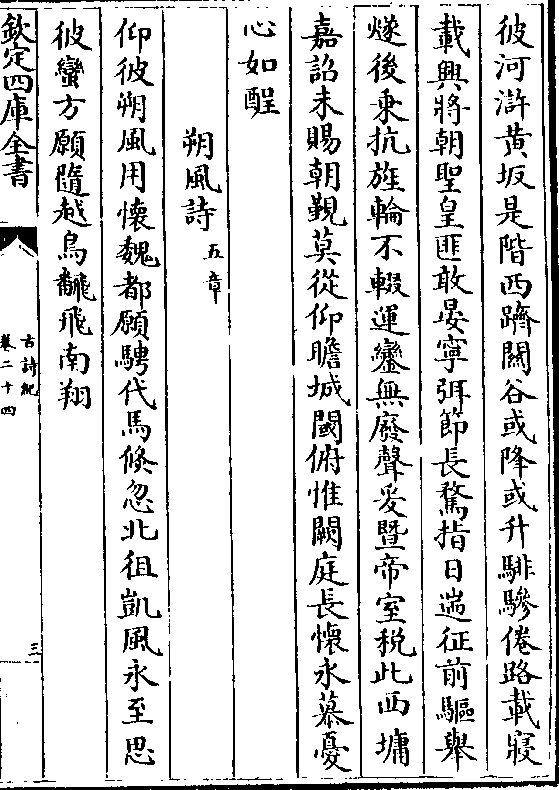 彼河滸黄坂是階西躋關谷或降或升騑驂倦路載寢
載興將朝聖皇匪敢晏寧弭節長騖指日遄征前驅舉
燧後乗抗旌輪不輟運鑾無廢聲爰暨帝室税此西墉
嘉詔未賜朝覲莫從仰瞻城閾俯惟闕庭長懷永慕憂
心如酲
朔風詩五章
仰彼朔風用懷魏都願騁代馬倐忽北徂凱風永至思
彼蠻方願隨越鳥飜飛南翔
欽定四庫全書
古詩紀
卷二十四
三